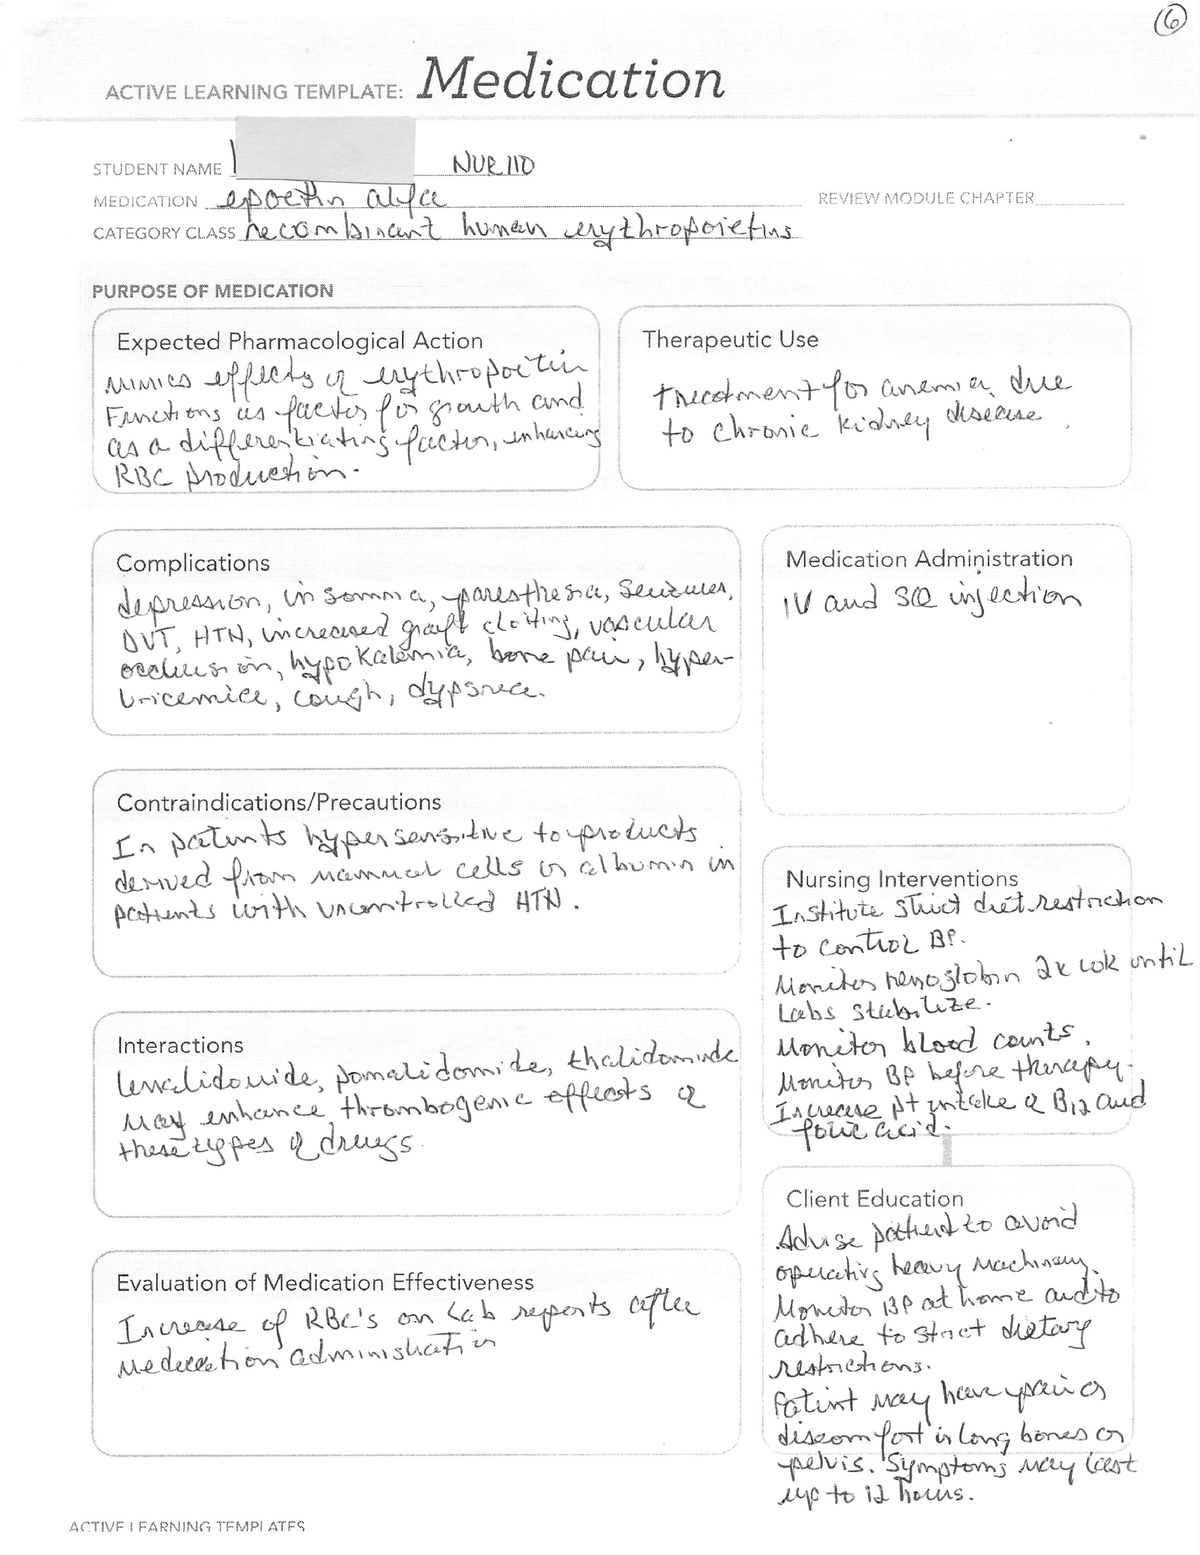 6
ACTIVE LEARNING TEMPLATE: Medication
STUDENT NAME NUR 110
MEDICATION epoetin alfa REVIEW MODULE CHAPTER
CATEGORY CLASS recombinant human erythropoietins
PURPOSE OF MEDICATION
Expected Pharmacological Action
Mimics effects of erythropoetin
Functions as factor for growth and
as a differentiating factor, enhancing
RBC production.
Therapeutic Use
treatment for anemia due
to chronic kidney disease.
Complications
depression, insomnia, paresthesia, seizures,
DVT, HTN, increased graft clotting, vascular
occlusion, hypokalemia, bone pain, hyper-
uricemice, cough, dypsnea.
Medication Administration
IV and SQ injection
Contraindications/Precautions
In patients hypersensitive to products
derived from mammal cells or albumin in
patients with uncontrolled HTN.
Nursing Interventions
Institute strict diet restriction
to control BP.
Monitor hemoglobin 2x wk until
Labs stabilize.
Monitor blood counts.
Monitor BP before therapy.
Increase pt intake of B12 and
folic acid.
Interactions
lenalidomide, pomalidomide, thalidomide
may enhance thrombogenic effects of
these types of drugs.
Client Education
Advise patient to avoid
operating heavy machinery.
Monitor BP at home and to
adhere to strict dietary
restrictions.
Patient may have pain or
discomfort in long bones or
pelvis. Symptoms may last
up to 12 hours.
Evaluation of Medication Effectiveness
Increase of RBC's on Lab reports after
Medication administration
ACTIVE LEARNING TEMPLATES